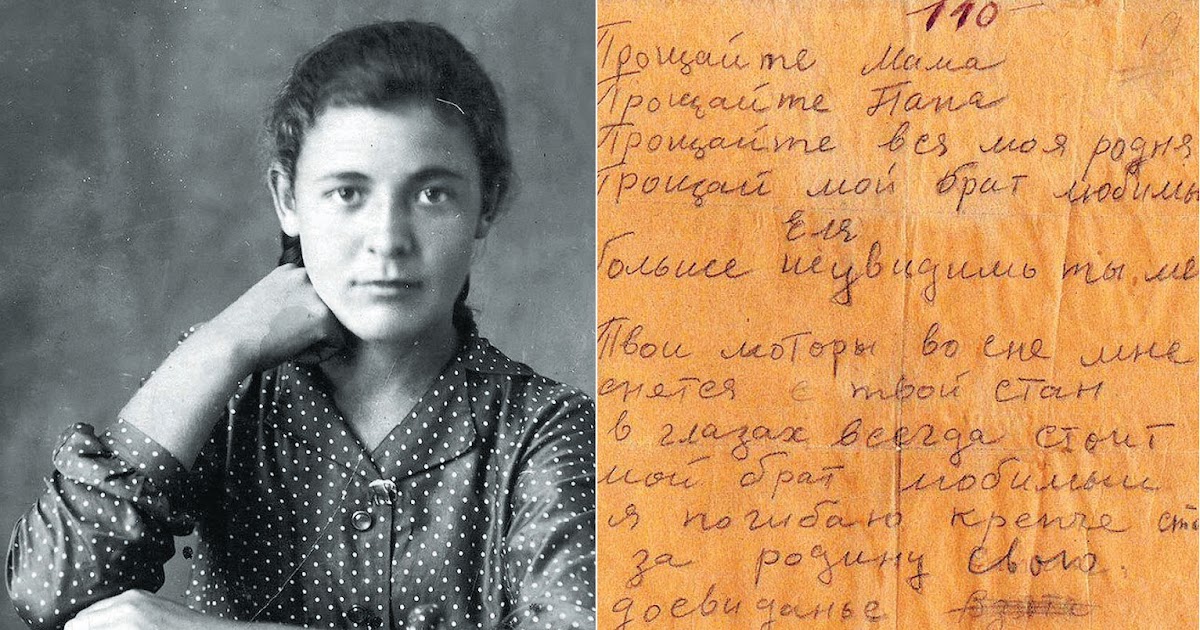 110
19
Прощайте Мама
Прощайте Папа
Прощайте вся моя родня
Прощай мой брат любимы
Еля
больше неувидишь ты ме
Твои моторы во сне мне
снетса с твой стан
в глазах всегда стоит
мой брат любимый
я погибаю крепче ст
за родину свою.
досвиданье